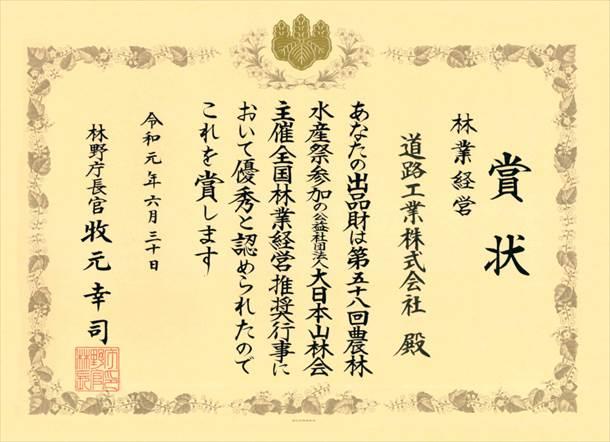 賞状
林業経営
道路工業株式会社 殿
あなたの出品財は第五十八回農林
水産祭参加の公益社団法人大日本山林会
主催全国林業経営推奨行事に
おいて優秀と認められたので
これを賞します
令和元年六月三十日
林野庁長官 牧元幸司